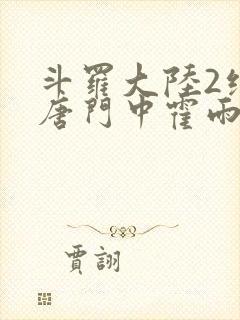 斗羅大陸2
唐門中霍雨
賈詡